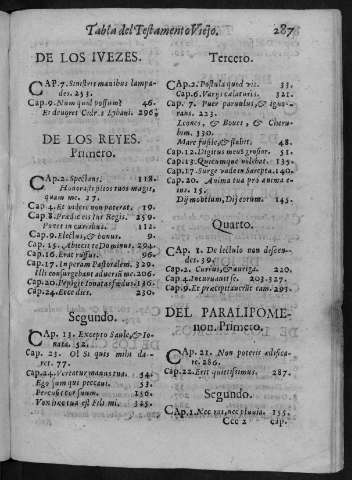 Tabla del Testamento Viejo. 287
DE LOS IVEZES.
CAP. 7. Sinistris manibus lampades. 253.
Cap. 9. Nunquid possum? 46.
Et devoret Cedros Lybani. 296.
DE LOS REYES.
Primero.
CAP. 2. Speculans, 118.
Honorastis pitos tuos magis,
quam me. 27.
Cap. 4. Et videre non poterat. 19.
Cap. 8. Prædic eis ius Regis. 259.
Ponet in curribus. 112.
Cap. 9. Electus, & bonus. 9.
Cap. 15. Abiecit te Dominus. 294.
Cap. 16. Erat ruffus. 96.
Cap. 17. In peram Pastoralem. 329.
Illi consurgebant adversum me. 206.
Cap. 20. Pepigit Ionatas fœdus. 136.
Cap. 24. Ecce dies. 230.
Segundo.
CAP. 13. Excepto Saule, & Ionata. 52.
Cap. 23. O! Si quis mihi daret. 77.
Cap. 24. Vertatur manus tua. 54.
Ego sum qui peccavi. 53.
Percussit cor suum. 156.
Vox ixo tua est Fili mi. 325.
Tercero.
CAP. 2. Postula quod vis. 33.
Cap. 6. Varijs calaturis. 321.
Cap. 7. Puer parvulus, & ignorans. 223.
Leones, & Boves, & Cherubim. 330.
Mare fusile, & stabit. 48.
Cap. 12. Digitus meus grossior. 51.
Cap. 13. Quicumque volebat. 135.
Cap. 17. Surge vade in Sarepta. 140.
Cap. 20. Anima tua pro anima eius. 15.
Dij montium, Dij eorum. 145.
Quarto.
CAP. 1. De lectulo non descendes. 39.
Cap. 2. Currus, & auriga. 220.
Cap. 4. Incurvavit se. 203. 327.
Cap. 9. Et præcipitaverūt eam. 295.
DEL PARALIPOME-
non. Primero.
CAP. 21. Non poteris ædificare. 286.
Cap. 22. Erit quietissimus. 287.
Segundo.
CAP. 1. Nec ros, nec pluvia. 155.
Ccc 2 Cap.